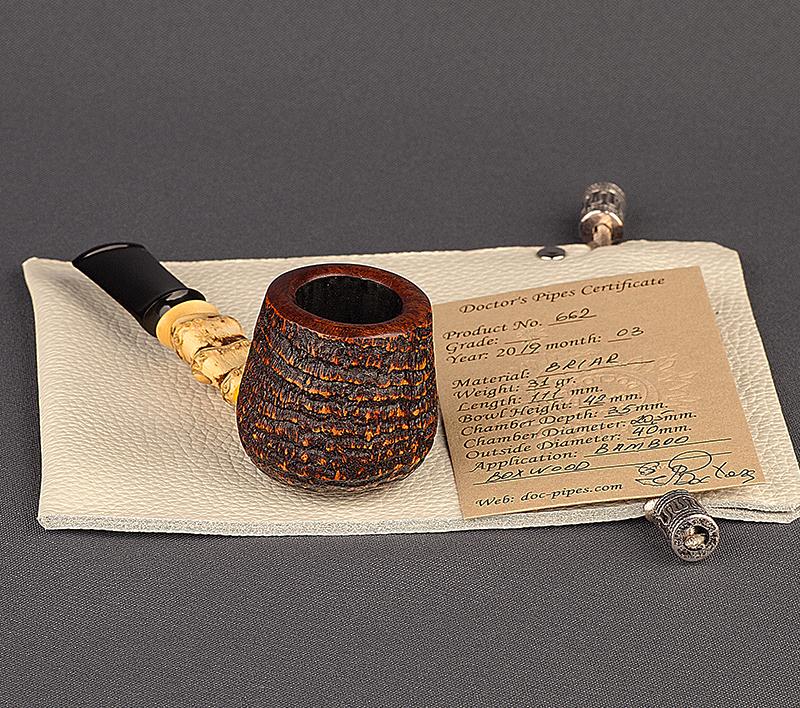 Doctor's Pipes Certificate
Product No. 662
Grade:
Year: 2019 month: 03
Material: BRIAR
Weight: 31 gr.
Length: 111 mm.
Bowl Height: 42 mm.
Chamber Depth: 35 mm.
Chamber Diameter: 20 mm.
Outside Diameter: 40 mm.
Application: BAMBOO
BOXWOOD
Web: doc-pipes.com